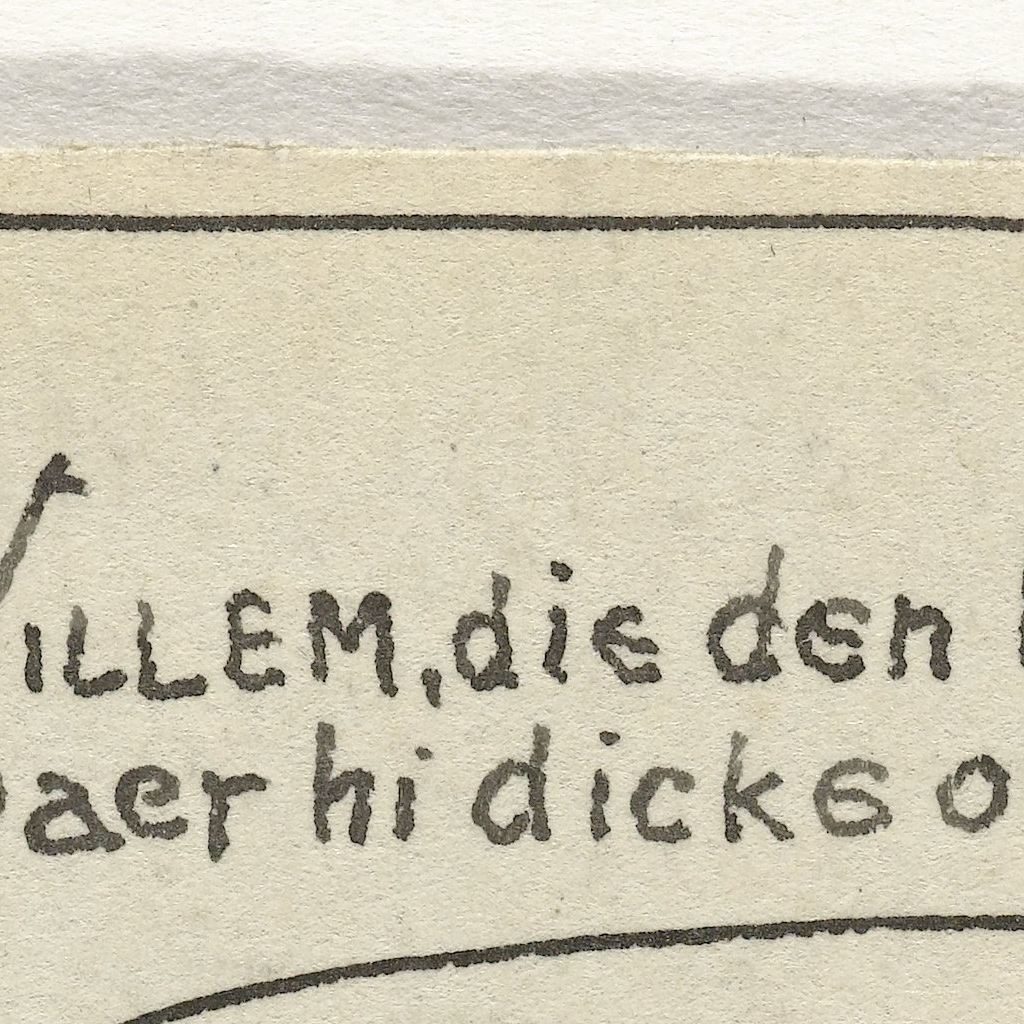 WILLEM, die den
Daer hi dicke o